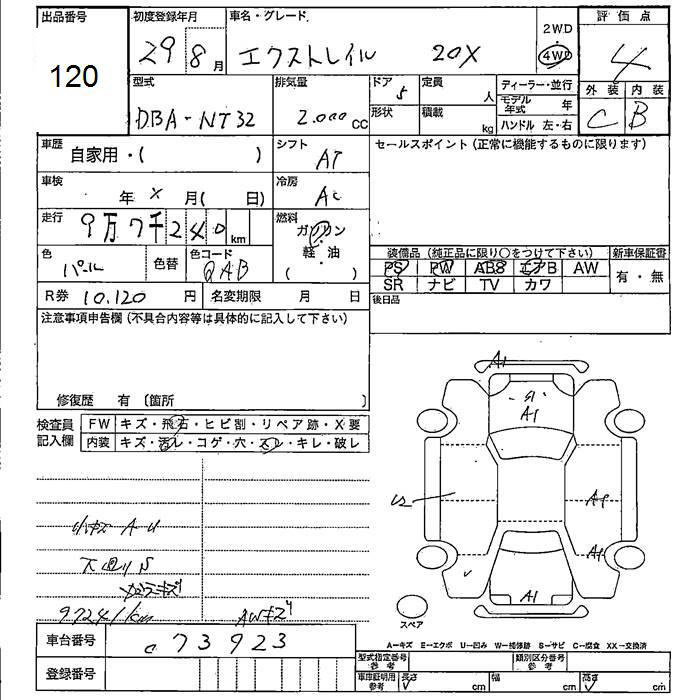 出品番号
120
初度登録年月
29 8月
車名・グレード
エクストレイル 20X
2WD
4WD
評価点
4
外装 内装
C B
型式
DBA-NT32
排気量
2.000 CC
ドア 5
形状
定員 人
積載 kg
ディーラー・並行
モデル年式 年
ハンドル 左・右
車歴
自家用・( )
シフト
AT
セールスポイント(正常に機能するものに限ります)
車検
年 X 月( 日)
冷房
AC
走行
9万7千240km
燃料
ガソリン
・
軽・油
( )
色
パール
色替
色コード
QAB
装備品(純正品に限り○をつけて下さい)
PS PW ABS エアB AW
SR ナビ TV カワ
新車保証書
有・無
R券 10,120 円
名変期限 月 日
後日品
注意事項申告欄(不具合内容等は具体的に記入して下さい)
修復歴 有 〔箇所 〕
検査員
記入欄
FW キズ・飛石・ヒビ割・リペア跡・X要
内装 キズ・汚レ・コゲ・穴・スレ・キレ・破レ
A1
A1
U2
A1
A1
A1
小キズ A-U
下廻りS
97241km
AWキズ
スペア
A=キズ E=エクボ U=凹み W=補修跡 S=サビ C=腐食 XX=交換済
車台番号
c 73923
登録番号
型式指定番号
参考
類別区分番号
参考
車庫証明用
参考
長さ cm
幅 cm
高さ cm